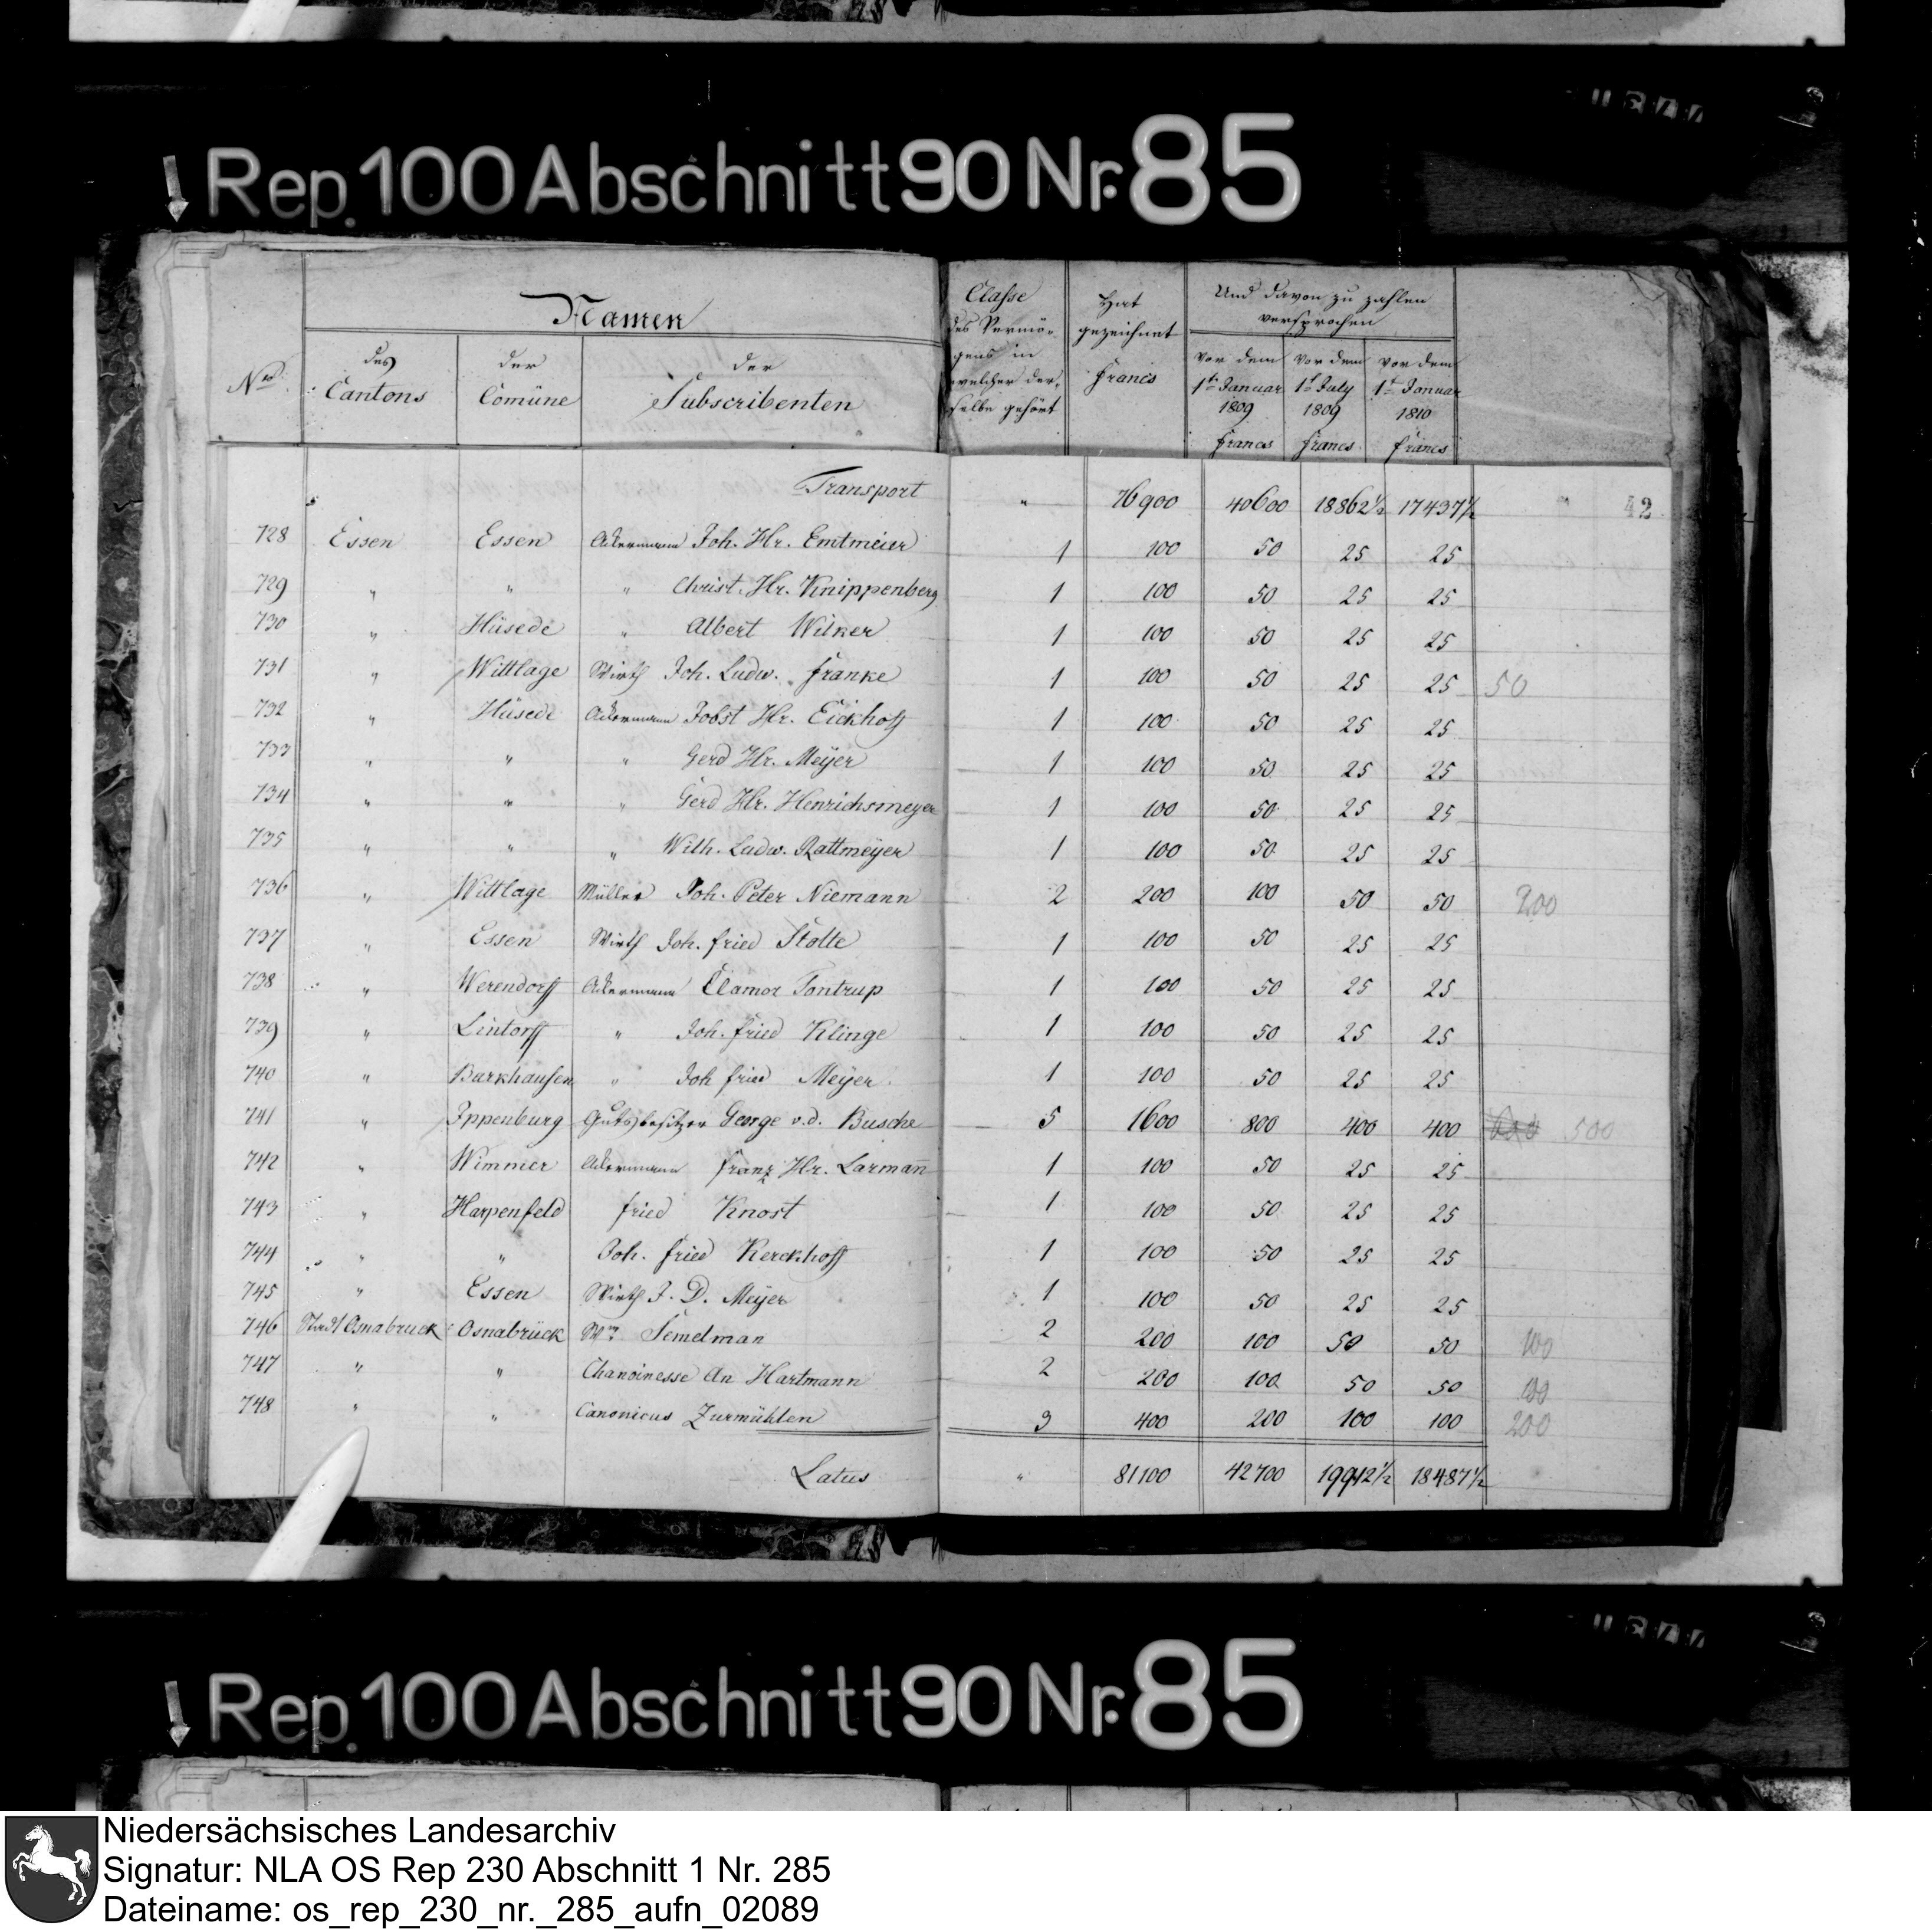 Rep. 100 Abschnitt 90 Nr. 85
Namen
Nro.
des Cantons
der Comüne
der Subscribenten
Classe des Vermö-
gens in
welcher der-
selbe gehört
Hat
gezeichnet
Francs
Und davon zu zahlen
versprochen
vor dem 1t Januar 1809 Francs
vor dem 1t July 1809 Francs
vor dem 1t Januar 1810 Francs
42
Transport " 76900 40600 18862½ 17437½
728 Essen Essen Ackermann Joh. Hr. Emtmeier 1 100 50 25 25
729 " " " Christ. Hr. Knippenberg 1 100 50 25 25
730 " Hüsede " Albert Wilker 1 100 50 25 25
731 " Wittlage Wirth Joh. Ludw. Franke 1 100 50 25 25 50
732 " Hüsede Ackermann Jobst Hr. Eickhoff 1 100 50 25 25
733 " " " Gerd Hr. Meÿer 1 100 50 25 25
734 " " " Gerd Hr. Henrichsmeyer 1 100 50 25 25
735 " " " Wilh. Ludw. Rattmeÿer 1 100 50 25 25
736 " Wittlage Müller Joh. Peter Niemann 2 200 100 50 50 200
737 " Essen Wirth Joh. Fried Stolte 1 100 50 25 25
738 " Werendorff Ackermann Clamor Tontrup 1 100 50 25 25
739 " Lintorff " Joh. Fried Klinge 1 100 50 25 25
740 " Barkhausen " Joh Fried Meÿer 1 100 50 25 25
741 " Ippenburg Gutsbesitzer George v. d. Busche 5 1600 800 400 400 500
742 " Wimmer Ackermann Franz Hr. Larmañ 1 100 50 25 25
743 " Harpenfeld Fried Knost 1 100 50 25 25
744 " " Joh. Fried Kerckhoff 1 100 50 25 25
745 " Essen Wirth J. D. Meÿer 1 100 50 25 25
746 Stadt Osnabruck Osnabrück Semelman 2 200 100 50 50 100
747 " " Chanoinesse An Hartmann 2 200 100 50 50 100
748 " " Canonicus Zurmühlen 3 400 200 100 100 200
Latus " 81100 42700 19912½ 18487½
Rep. 100 Abschnitt 90 Nr. 85
Niedersächsisches Landesarchiv
Signatur: NLA OS Rep 230 Abschnitt 1 Nr. 285
Dateiname: os_rep_230_nr._285_aufn_02089